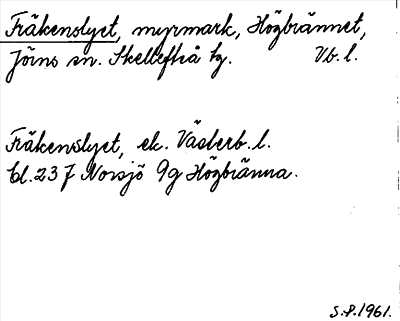 Fräkenslyet, myrmark, Högbrännet,
Jörns sn. Skellefteå tg. Vb. l.
Fräkenslyet, ek. Västerb. l.
bl. 23 J Norsjö 9g Högbränna.
S.P. 1961.